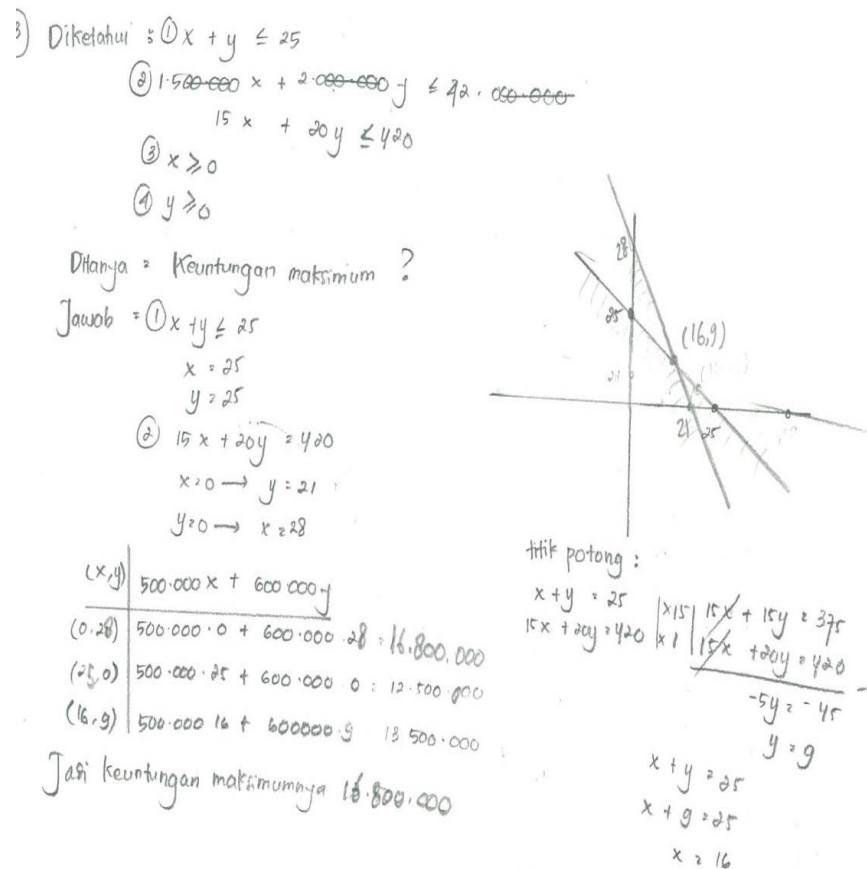 3) Diketahui : ① x + y ≤ 25
② 1.500.000 x + 2.000.000 y ≤ 42.000.000
15 x + 20y ≤ 420
③ x ≥ 0
④ y ≥ 0
Ditanya = Keuntungan maksimum ?
Jawab = ① x + y ≤ 25
x = 25
y = 25
② 15 x + 20y = 420
x = 0 → y = 21
y = 0 → x = 28
(x,y) 500.000 x + 600.000 y
(0.28) 500.000 . 0 + 600.000 . 28 = 16.800.000
(25,0) 500.000 . 25 + 600.000 . 0 : 12.500.000
(16,9) 500.000 16 + 600000 . 9 13 500.000
Jadi keuntungan maksimumnya 16.800.000
28
25
21
(16,9)
21 25
titik potong :
x + y = 25 |x15| 15x + 15y = 375
15x + 20y = 420 |x1| 15x + 20y = 420 -
-5y = -45
y = 9
x + y = 25
x + 9 = 25
x = 16